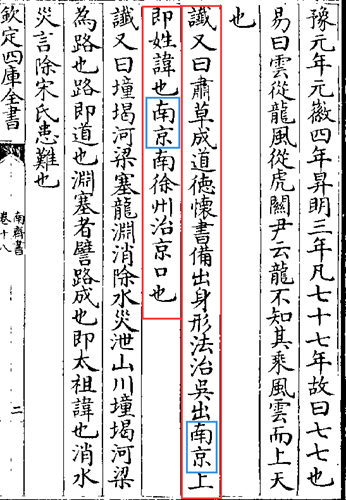 豫元年元徽四年昇明三年凡七十七年故曰七七也
易曰雲從龍風從虎關尹云龍不知其乘風雲而上天
也
讖又曰肅草成道德懷書備出身形法治吳出南京上
即姓諱也南京南徐州治京口也
讖又曰墥堨河梁塞龍淵消除水災泄山川墥堨河梁
為路也路即道也淵塞者譬路成也即太祖諱也消水
災言除宋氏患難也
欽定四庫全書
南齊書
卷十八
二